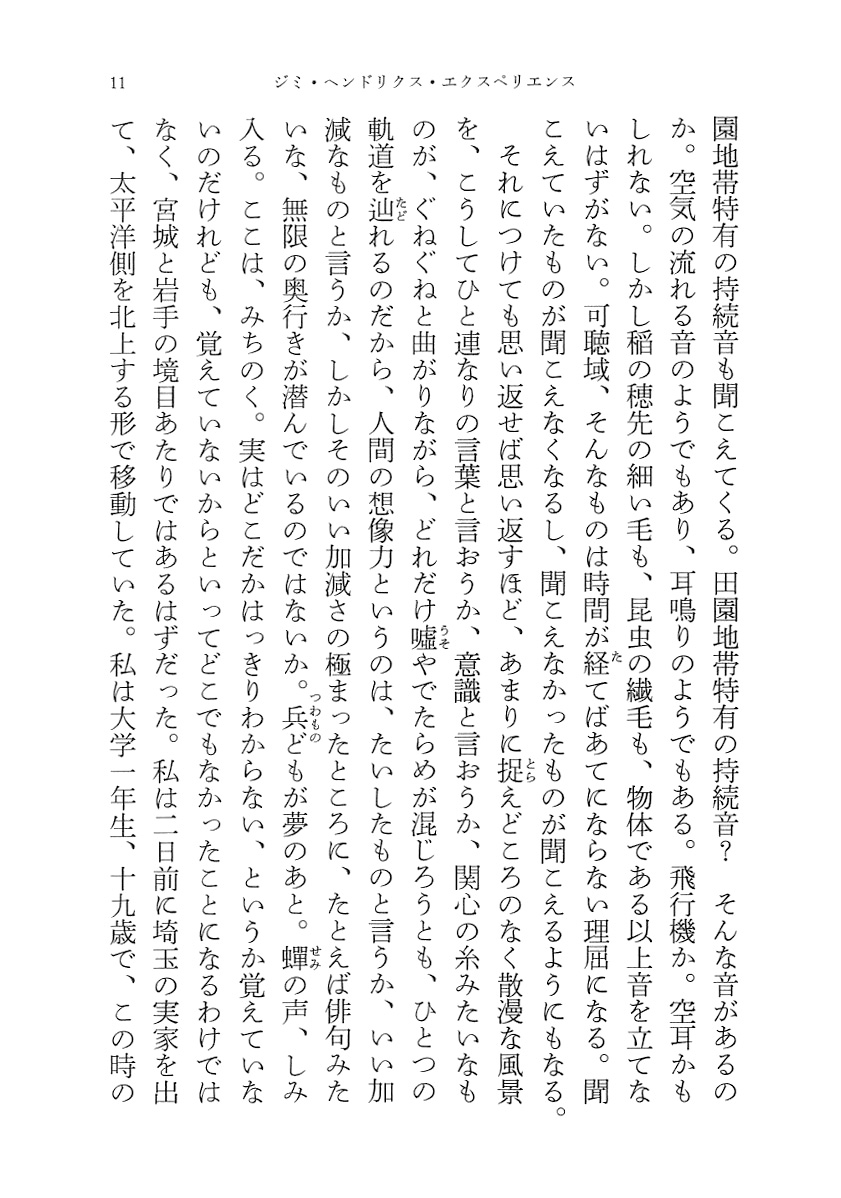 11
ジミ・ヘンドリクス・エクスペリエンス
園地帯特有の持続音も聞こえてくる。田園地帯特有の持続音？　そんな音があるの
か。空気の流れる音のようでもあり、耳鳴りのようでもある。飛行機か。空耳かも
しれない。しかし稲の穂先の細い毛も、昆虫の繊毛も、物体である以上音を立てな
いはずがない。可聴域、そんなものは時間が経てばあてにならない理屈になる。聞
た
こえていたものが聞こえなくなるし、聞こえなかったものが聞こえるようにもなる。
それにつけても思い返せば思い返すほど、あまりに捉えどころのなく散漫な風景
とら
を、こうしてひと連なりの言葉と言おうか、意識と言おうか、関心の糸みたいなも
のが、ぐねぐねと曲がりながら、どれだけ嘘やでたらめが混じろうとも、ひとつの
うそ
軌道を辿れるのだから、人間の想像力というのは、たいしたものと言うか、いい加
たど
減なものと言うか、しかしそのいい加減さの極まったところに、たとえば俳句みた
いな、無限の奥行きが潜んでいるのではないか。兵どもが夢のあと。蟬の声、しみ
つわもの
せみ
入る。ここは、みちのく。実はどこだかはっきりわからない、というか覚えていな
いのだけれども、覚えていないからといってどこでもなかったことになるわけでは
なく、宮城と岩手の境目あたりではあるはずだった。私は二日前に埼玉の実家を出
て、太平洋側を北上する形で移動していた。私は大学一年生、十九歳で、この時の